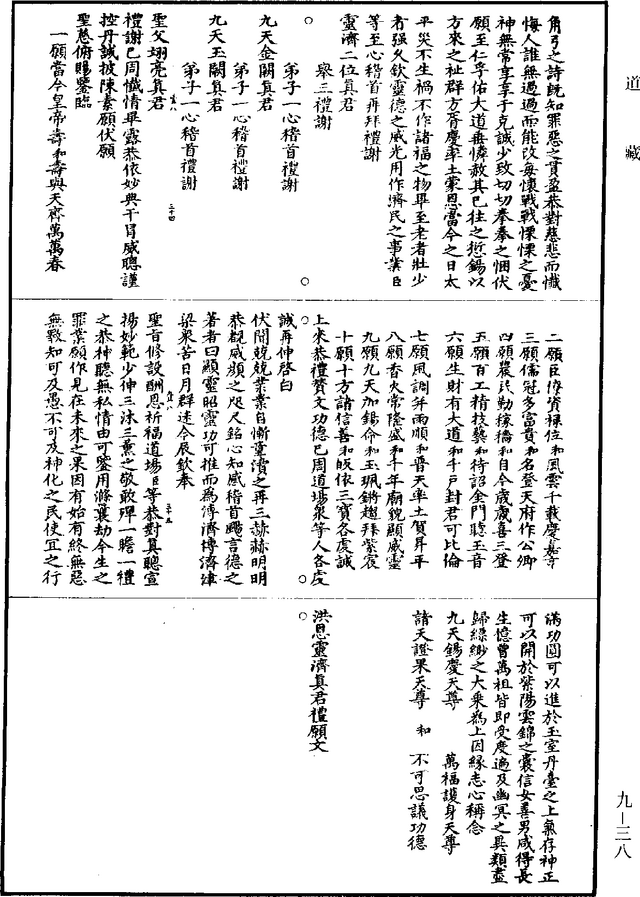 道藏
角弓之詩旣知罪惡之貫盈恭對慈悲而懺
悔人誰無過過而能改每懷戰戰慄慄之憂
神無常享享于克誠少致切切拳拳之悃伏
願至仁孚佑大道垂憐赦其已往之愆錫以
方來之祉群方胥慶率土蒙恩當今之日太
平災不生禍不作諸福之物畢至老者壯少
者强久欽靈德之威光用作濟民之事業臣
等至心稽首再拜禮謝
靈濟二位真君
舉三禮謝
○　　　　○
弟子一心稽首禮謝
九天金闕真君
弟子一心稽首禮謝
九天玉闕真君
弟子一心稽首禮謝
聖父翊亮真君
禮謝已周懺情畢露恭依妙典干冒威聰謹
控丹誠披陳素願伏願
聖慈俯賜鑒臨
一願當今皇帝壽和壽與天齊萬萬春
二願臣僚資祿位和風雲千載慶嘉
三願儒冠多富貴和名登天府作公卿
四願農民勤稼穡和自今歲歲喜三登
五願百工精技藝和待詔金門聽玉音
六願生財有大道和千戶封君可比倫
七願風調并雨順和普天率土賀昇平
八願香火常隆盛和千年廟貌顯威靈
九願九天加錫命和玉珮鏘趨拜紫宸
十願十方諸信善和皈依三寶各虔誠
上來恭禮贊文功德已周道場衆等人各虔
○　　　　○
誠再伸啓白
伏聞兢兢業業自慚瀆之再三赫赫明明
恭覩威顏之咫尺銘心知感稽首颺言德之
著者曰顯靈昭靈功可推而爲傅濟博濟津
梁衆苦日月群迷今辰欽奉
聖旨修設酬恩祈福道場臣等恭對真聰宣
揚妙範少伸三沐三薰之敬敢殫一瞻一禮
之恭神聽無私情由可鑒用滌曩劫今生之
罪業願作見在未來之果因有始有終無惡
無斁知可及愚不可及神化之民使宜之行
滿功圓可以進於玉室丹臺之上氣存神正
可以開於紫陽雲錦之囊信女善男咸得長
生憶曾萬祖皆卽受度遍及幽冥之異類盡
歸縹緲之大乘爲上因緣志心稱念
九天錫慶天尊　　萬福護身天尊
請天證果天尊　和　不可思議功德
洪恩靈濟真君禮願文
○
九－三八